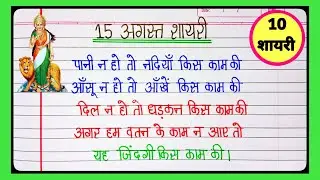 15 अगस्त शायरी
10
शायरी
पानी न हो तो नदियाँ किस काम की
आँसू न हो तो आँखें किस काम की
दिल न हो तो धड़कन किस काम की
अगर हम वतन के काम न आए तो
यह जिंदगी किस काम की।